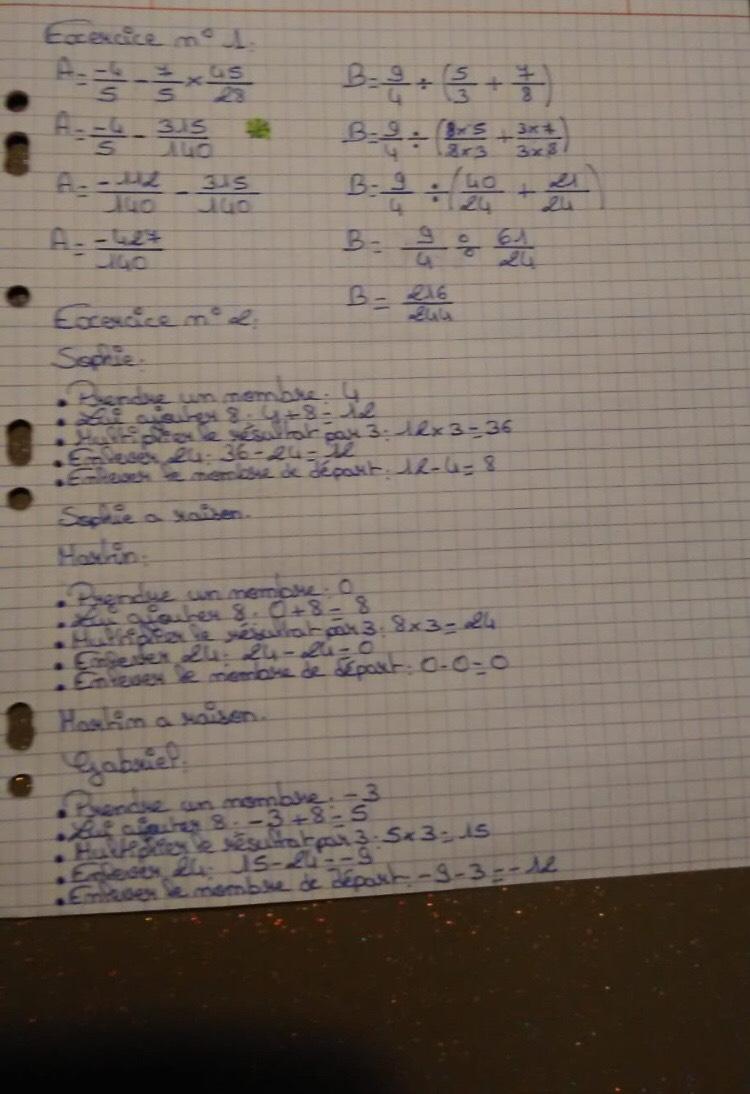 Exercice n° 1:
A = -4/5 - 7/5 × 45/28
A = -4/5 - 315/140
A = -112/140 - 315/140
A = -427/140
B = 9/4 ÷ (5/3 + 7/8)
B = 9/4 ÷ (8×5/8×3 + 3×7/3×8)
B = 9/4 ÷ (40/24 + 21/24)
B = 9/4 ÷ 61/24
B = 216/244
Exercice n° 2:
Sophie:
• Prendre un nombre: 4
• Lui ajouter 8: 4+8=12
• Multiplier le résultat par 3: 12×3=36
• Enlever 24: 36-24=12
• Enlever le nombre de départ: 12-4=8
Sophie a raison.
Martin:
• Prendre un nombre: 0
• Lui ajouter 8: 0+8=8
• Multiplier le résultat par 3: 8×3=24
• Enlever 24: 24-24=0
• Enlever le nombre de départ: 0-0=0
Martin a raison.
Gabriel:
• Prendre un nombre: -3
• Lui ajouter 8: -3+8=5
• Multiplier le résultat par 3: 5×3=15
• Enlever 24: 15-24=-9
• Enlever le nombre de départ: -9-3=-12